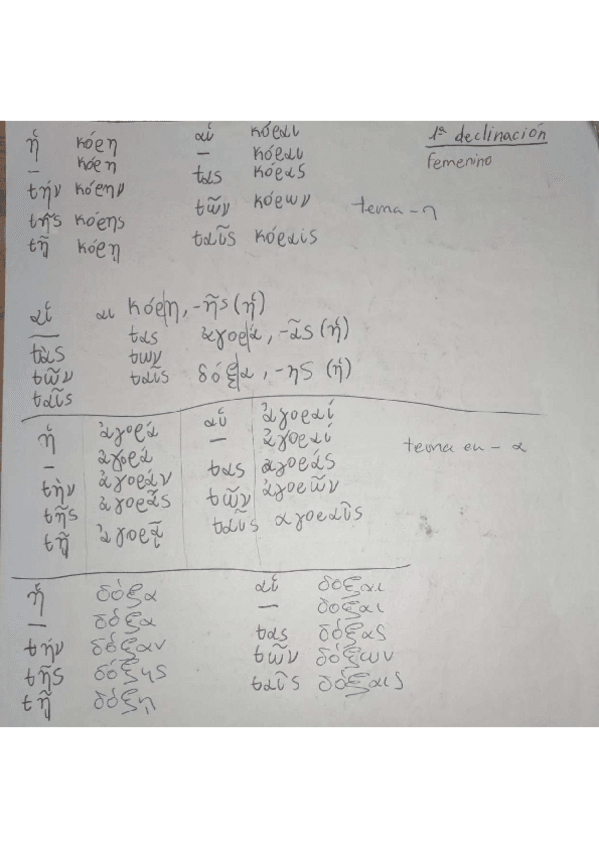 1ª declinación
femenino
ἡ κόρη αἱ κόραι
— κόρη — κόραι
τήν κόρην τας κόρας
τῆς κόρης τῶν κόρων tema -η
τῇ κόρῃ ταῖς κόραις
αἱ αι κόρη, -ῆς (ἡ)
— τας ἀγορά, -ᾶς (ἡ)
τὰς των
τῶν ταῖς δόξα, -ης (ἡ)
ταῖς
ἡ ἀγορά αἱ ἀγοραί
— ἀγορά — ἀγοραί
τὴν ἀγοράν τας αγοράς tema en -α
τῆς ἀγορᾶς τῶν ἀγορῶν
τῇ ἀγορᾷ ταῖς αγοραῖς
ἡ δόξα αἱ δόξαι
— δόξα — δόξαι
τήν δόξαν τας δόξας
τῆς δόξης τῶν δόξων
τῇ δόξῃ ταῖς δόξαις